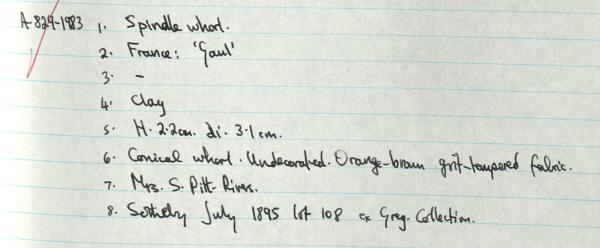 A-829-1983 1. Spindle whorl.
2. France: 'Gaul'
3. -
4. Clay
5. H. 2.2cm. di. 3.1cm.
6. Conical whorl. Undecorated. Orange-brown grit-tempered fabric.
7. Mrs. S. Pitt-Rivers.
8. Sotheby July 1895 lot 108 ex Greg. Collection.